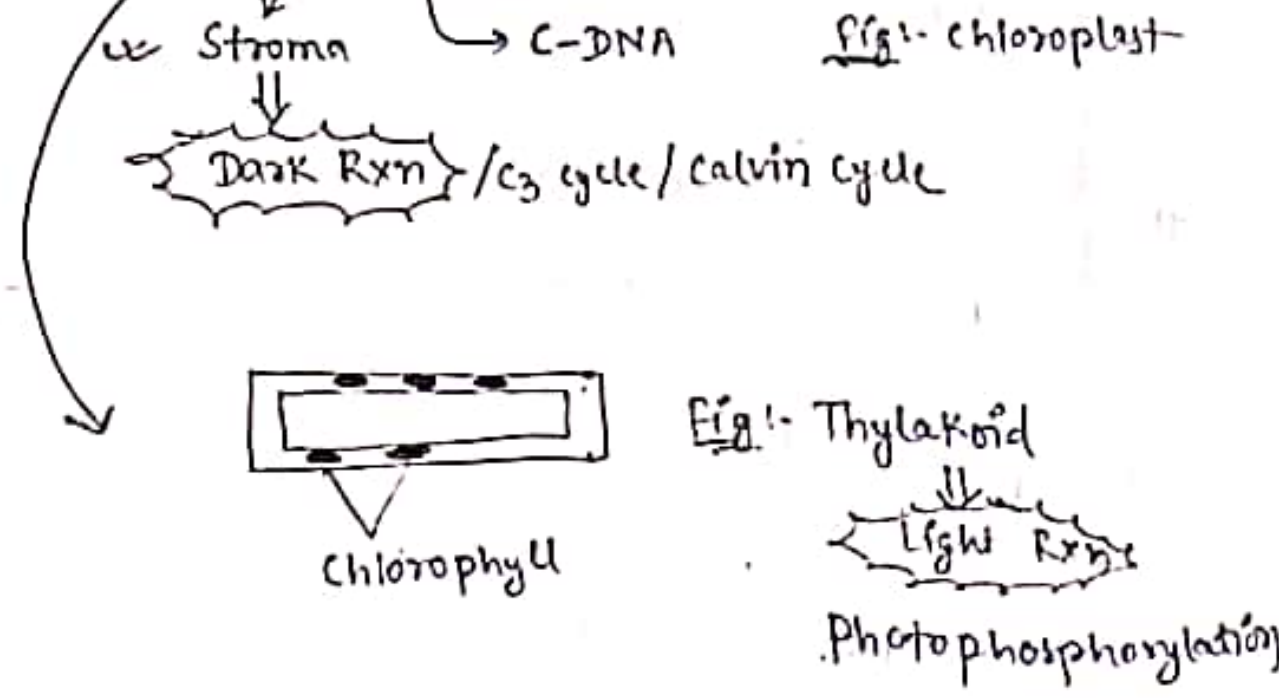 Stroma → C-DNA Fig:- Chloroplast
Dark Rxn /C3 cycle/Calvin cycle
Fig:- Thylakoid
Light Rxn
Chlorophyll
Photophosphorylation